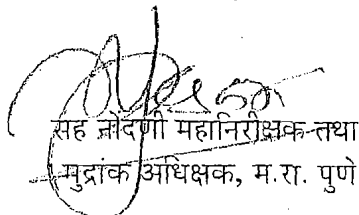 सह नोंदणी महानिरीक्षक तथा
मुद्रांक अधिक्षक, म.रा. पुणे